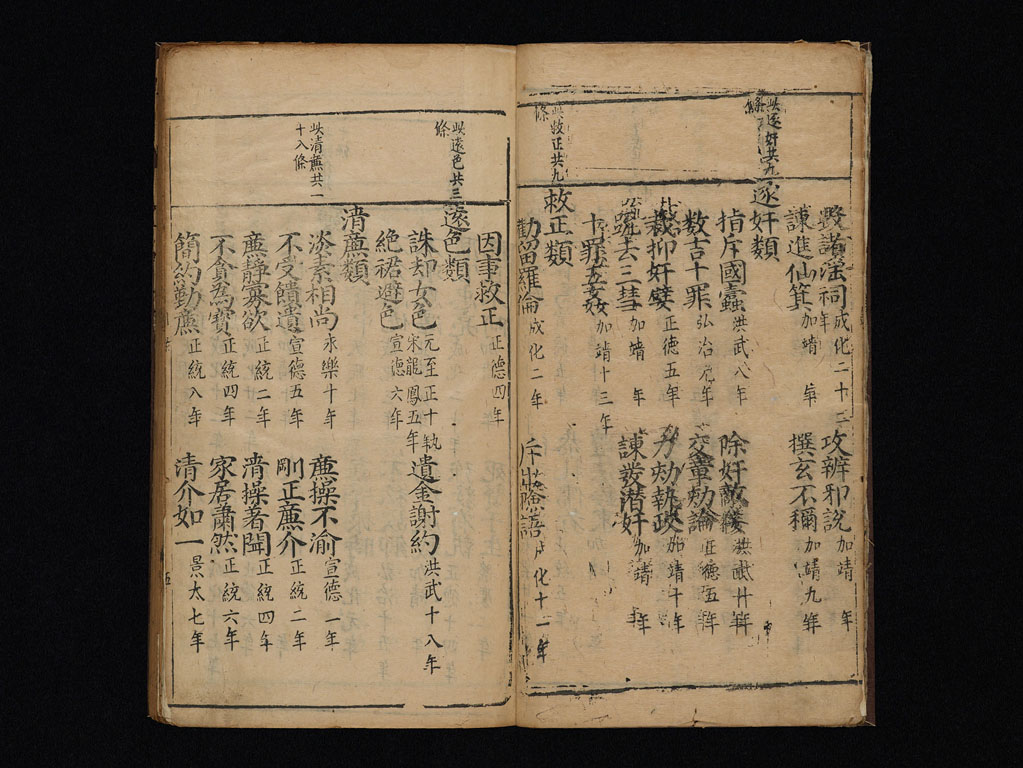 此逐奸共九條
毀諸淫祠成化二十二年 攻辨邪說加靖 年
諌進仙箕加靖 年 撰玄不稱加靖九年
逐奸類
指斥國蠹洪武八年 除奸敵
数吉十罪弘治元年 交章劾論正德五年
裁抑奸嬖正德五年 力劾執政加靖十年
去三彗加靖 年 諌發潜奸加靖 年
十罪加靖十三年
此救正共九條
救正類
勸留羅倫成化二年 語成化十一年
因事救正正德四年
此遠色共三條
遠色類
誅却女色元至正十 宋龍鳳五年 遺金謝約洪武十八年
絕裙避色宣德六年
此清廉共一十八條
清廉類
淡素相尚永樂十年 廉操不渝宣德一年
不受饋遺宣德五年 剛正廉介正統二年
廉靜寡欲正統二年 清操著聞正統四年
不貪爲寶正統四年 家居蕭然正統六年
簡約勤廉正統八年 清介如一景太七年
五